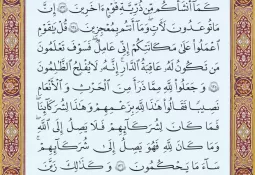 كَمَآ أَنشَأَكُم مِّن ذُرِّيَّةِ قَوْمٍ ءَاخَرِينَ ۝١٣٣ إِنَّ
مَا تُوعَدُونَ لَأٓتٍ وَمَآ أَنتُم بِمُعْجِزِينَ ۝١٣٤ قُلْ يَٰقَوْمِ
ٱعْمَلُوا۟ عَلَىٰ مَكَانَتِكُمْ إِنِّى عَامِلٌ فَسَوْفَ تَعْلَمُونَ
مَن تَكُونُ لَهُۥ عَٰقِبَةُ ٱلدَّارِ إِنَّهُۥ لَا يُفْلِحُ ٱلظَّٰلِمُونَ
۝١٣٥ وَجَعَلُوا۟ لِلَّهِ مِمَّا ذَرَأَ مِنَ ٱلْحَرْثِ وَٱلْأَنْعَٰمِ
نَصِيبًا فَقَالُوا۟ هَٰذَا لِلَّهِ بِزَعْمِهِمْ وَهَٰذَا لِشُرَكَآئِنَا
فَمَا كَانَ لِشُرَكَآئِهِمْ فَلَا يَصِلُ إِلَى ٱللَّهِ
وَمَا كَانَ لِلَّهِ فَهُوَ يَصِلُ إِلَىٰ شُرَكَآئِهِمْ
سَآءَ مَا يَحْكُمُونَ ۝١٣٦ وَكَذَٰلِكَ زَيَّنَ